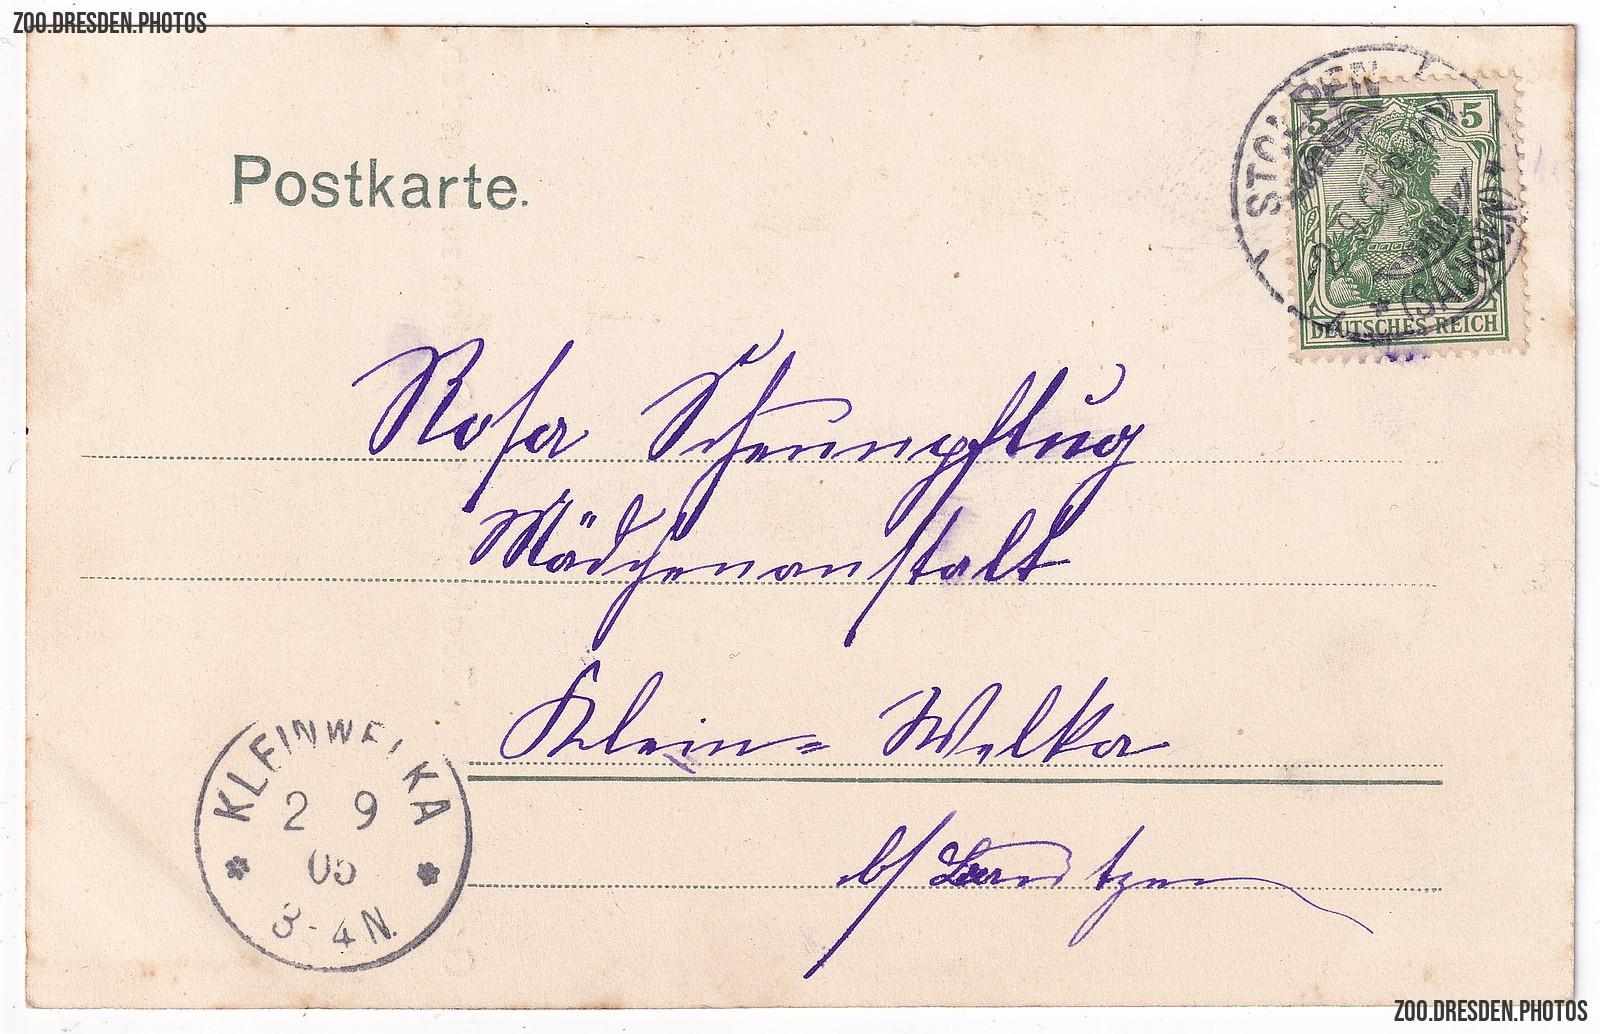 ZOO.DRESDEN.PHOTOS
Postkarte.
STOLPEN
5 5
2.9.05
* (SACHSEN) *
DEUTSCHES REICH
Rosa Scheunpflug
Mädchenanstalt
Klein= Welka
b/ Bautzen
KLEINWELKA
2 9
05
3-4N.
ZOO.DRESDEN.PHOTOS